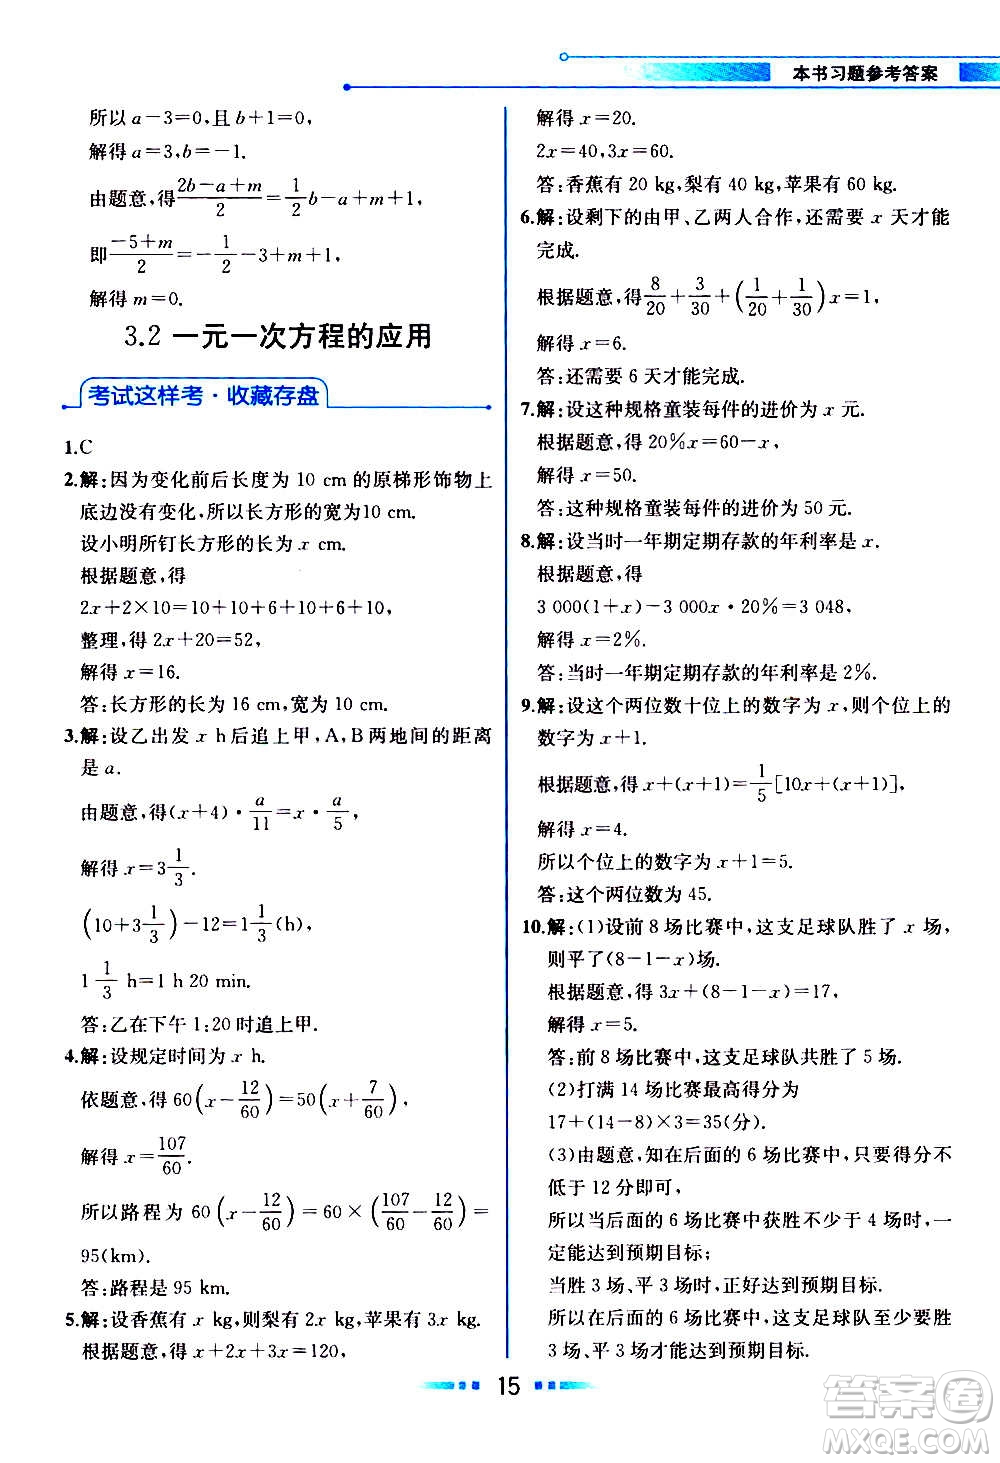 本书习题参考答案
所以 a-3=0,且 b+1=0,
解得 a=3,b=-1.
由题意,得\frac{2b-a+m}{2}=\frac{1}{2}b-a+m+1,
即\frac{-5+m}{2}=-\frac{1}{2}-3+m+1,
解得 m=0.
3.2 一元一次方程的应用
考试这样考·收藏存盘
1.C
2.解:因为变化前后长度为 10 cm 的原梯形饰物上
底边没有变化,所以长方形的宽为10 cm.
设小明所钉长方形的长为 x cm.
根据题意,得
2x+2×10=10+10+6+10+6+10,
整理,得 2x+20=52,
解得 x=16.
答:长方形的长为 16 cm,宽为 10 cm.
3.解:设乙出发 x h后追上甲,A,B两地间的距离
是 a.
由题意,得(x+4)·\frac{a}{11}=x·\frac{a}{5},
解得 x=3\frac{1}{3}.
(10+3\frac{1}{3})-12=1\frac{1}{3}(h),
1\frac{1}{3} h=1 h 20 min.
答:乙在下午 1:20时追上甲.
4.解:设规定时间为 x h.
依题意,得 60(x-\frac{12}{60})=50(x+\frac{7}{60}),
解得 x=\frac{107}{60}.
所以路程为 60(x-\frac{12}{60})=60×(\frac{107}{60}-\frac{12}{60})=
95(km).
答:路程是 95 km.
5.解:设香蕉有 x kg,则梨有 2x kg,苹果有 3x kg.
根据题意,得 x+2x+3x=120,
解得 x=20.
2x=40,3x=60.
答:香蕉有 20 kg,梨有 40 kg,苹果有 60 kg.
6.解:设剩下的由甲、乙两人合作,还需要 x 天才能
完成.
根据题意,得\frac{8}{20}+\frac{3}{30}+(\frac{1}{20}+\frac{1}{30})x=1,
解得 x=6.
答:还需要 6 天才能完成.
7.解:设这种规格童装每件的进价为 x 元.
根据题意,得 20%x=60-x,
解得 x=50.
答:这种规格童装每件的进价为 50 元.
8.解:设当时一年期定期存款的年利率是 x.
根据题意,得
3 000(1+x)-3 000x·20%=3 048,
解得 x=2%.
答:当时一年期定期存款的年利率是 2%.
9.解:设这个两位数十位上的数字为 x,则个位上的
数字为 x+1.
根据题意,得 x+(x+1)=\frac{1}{5}[10x+(x+1)],
解得 x=4.
所以个位上的数字为 x+1=5.
答:这个两位数为 45.
10.解:(1)设前 8 场比赛中,这支足球队胜了 x 场,
则平了(8-1-x)场.
根据题意,得 3x+(8-1-x)=17,
解得 x=5.
答:前 8 场比赛中,这支足球队共胜了 5 场.
(2)打满 14 场比赛最高得分为
17+(14-8)×3=35(分).
(3)由题意,知在后面的 6 场比赛中,只要得分不
低于 12 分即可,
所以当后面的 6 场比赛中获胜不少于 4 场时,一
定能达到预期目标;
当胜 3 场、平 3 场时,正好达到预期目标.
所以在后面的 6 场比赛中,这支足球队至少要胜
3 场、平 3 场才能达到预期目标.
15
答案圈
MXQE.COM